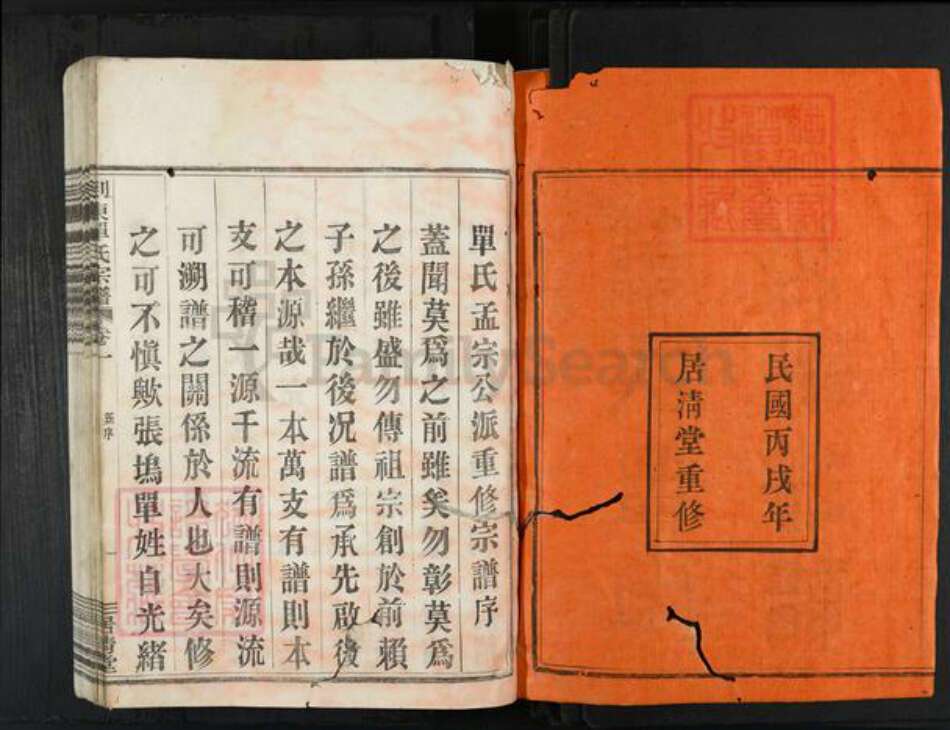 民國丙戌年
居清堂重修
單氏孟宗公派重修宗譜序
蓋聞莫爲之前雖矣勿彰莫爲
之後雖盛勿傳祖宗創於前賴
子孫繼於後况譜爲承先啟後
之本源哉一本萬支有譜則本
支可稽一源千流有譜則源流
可溯譜之關係於人也大矣修
之可不愼歟張塢單姓自光緒
東單氏宗譜 卷一
序
居清堂
FamilySearch